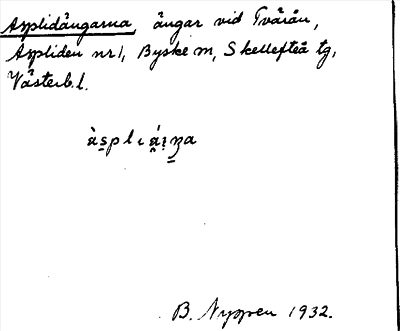 Asplidängarna, ängar vid Tvärån,
Aspliden nr 1, Byske sn, Skellefteå tg,
Västerb. l.
B. Nyppen 1932.